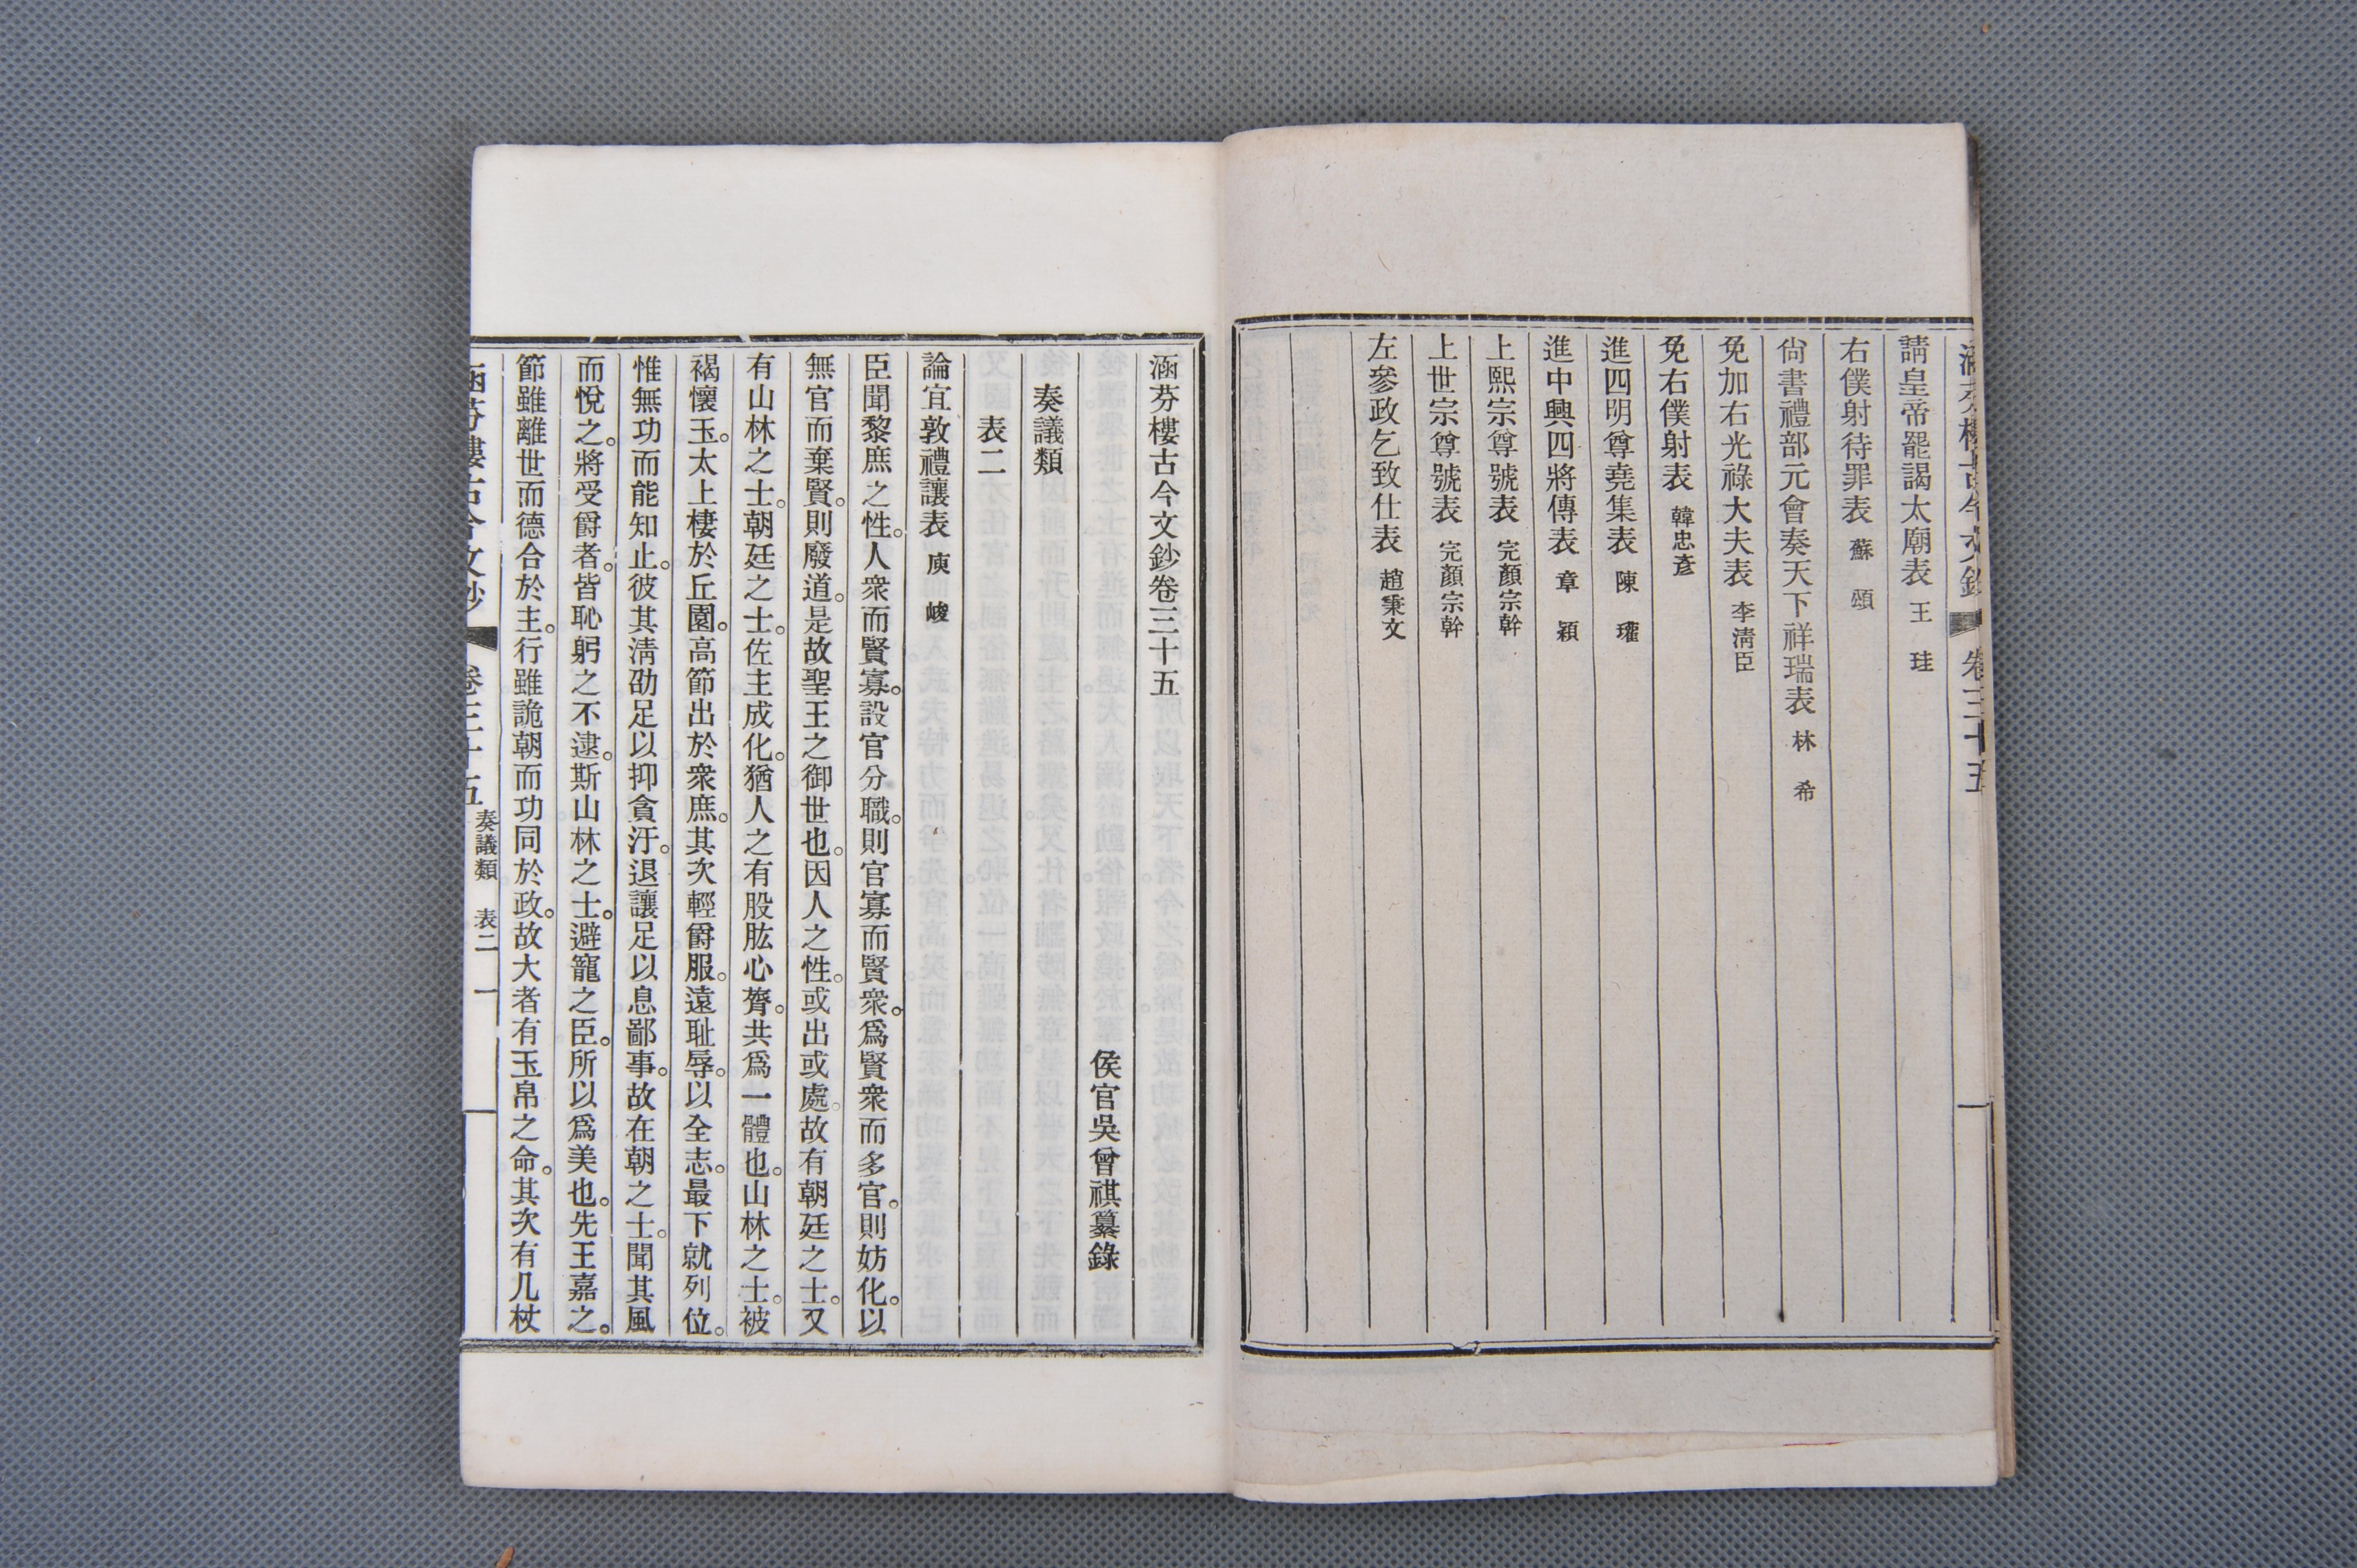 涵芬樓古今文鈔 卷三十五
請皇帝罷謁太廟表 王珪
右僕射待罪表 蘇頌
尙書禮部元會奏天下祥瑞表 林希
免加右光祿大夫表 李淸臣
免右僕射表 韓忠彥
進四明尊堯集表 陳瓘
進中興四將傳表 章穎
上熙宗尊號表 完顏宗幹
上世宗尊號表 完顏宗幹
左參政乞致仕表 趙秉文
涵芬樓古今文鈔卷三十五
侯官吳曾祺纂錄
奏議類
表二
論宜敦禮讓表 庾峻
臣聞黎庶之性。人衆而賢寡。設官分職。則官寡而賢衆。爲賢衆而多官。則妨化。以
無官而棄賢。則廢道。是故聖王之御世也。因人之性。或出或處。故有朝廷之士。又
有山林之士。朝廷之士。佐主成化。猶人之有股肱心膂。共爲一體也。山林之士。被
褐懷玉。太上棲於丘園。高節出於衆庶。其次輕爵服。遠耻辱。以全志。最下就列位。
惟無功而能知止。彼其淸劭足以抑貪汙。退讓足以息鄙事。故在朝之士。聞其風
而悅之。將受爵者。皆恥躬之不逮。斯山林之士。避寵之臣。所以爲美也。先王嘉之。
節雖離世而德合於主。行雖詭朝而功同於政。故大者有玉帛之命。其次有几杖
涵芬樓古今文鈔 卷三十五 奏議類 表二 一